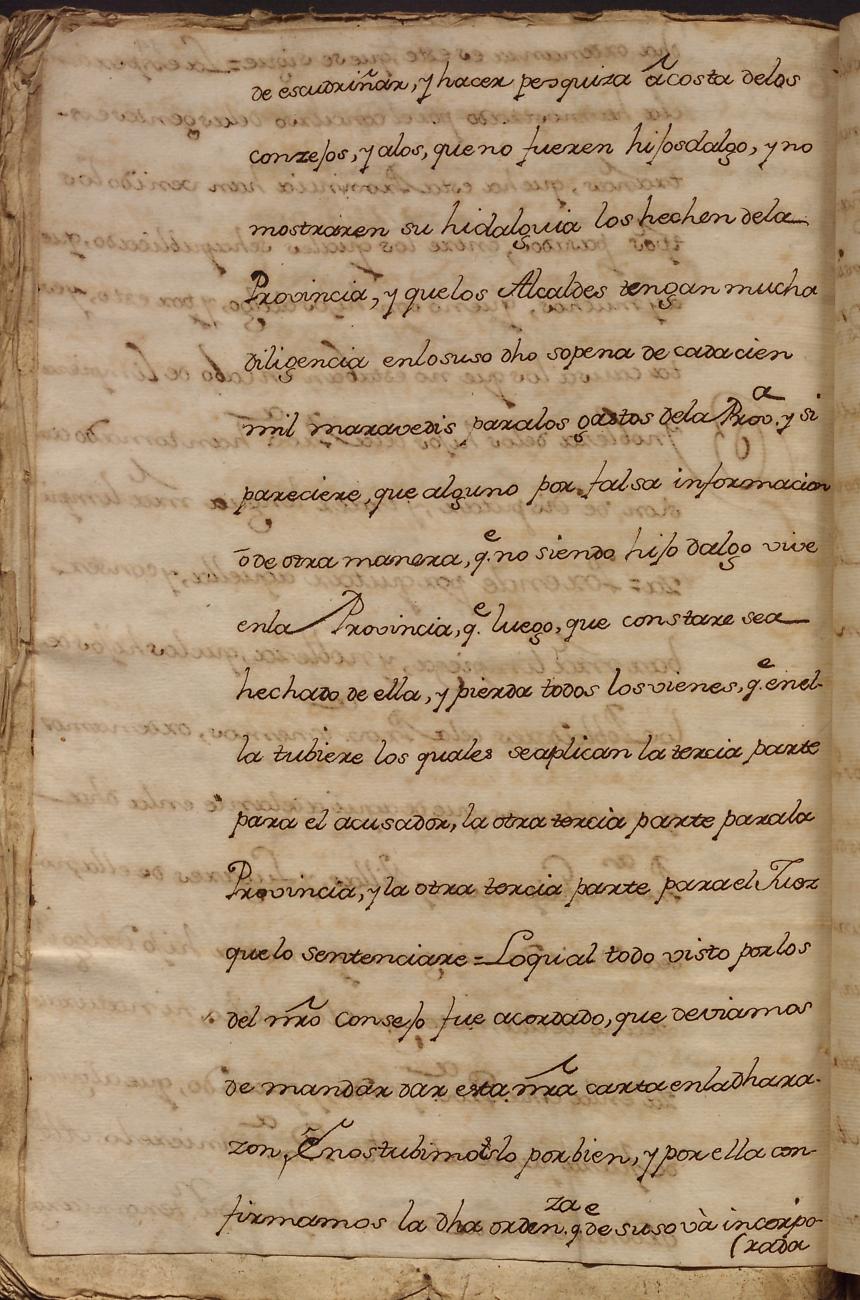 de escudriñar, y hacer pesquiza â costa delos
conzejos, y alos, que no fueren hijosdalgo, y no
mostraren su hidalguia los hechen dela
Provincia, y quelos Alcaldes tengan mucha
diligencia enlosuso dho sopena de cada cien
mil maravedis paralos gastos dela Prov.ª y si
pareciere, que alguno por falsa informacion
ò de otra manera, q.e no siendo hijo dalgo vive
enla Provincia, q.e luego, que constare sea
hechado de ella, y pierda todos los vienes, q.e enel-
la tubiere los quales seaplican la tercia parte
para el acusador, la otra tercia parte parala
Provincia, y la otra tercia parte para el Juez
quelo sentenciare = Loqual todo visto porlos
del nrõ Consejo fue acordado, que deviamos
de mandar dar esta nrã carta enla dha ra-
zon, ê nostubimoslo por bien, y por ella con-
firmamos la dha ordenza q.e de suso và incorpo-
(rada